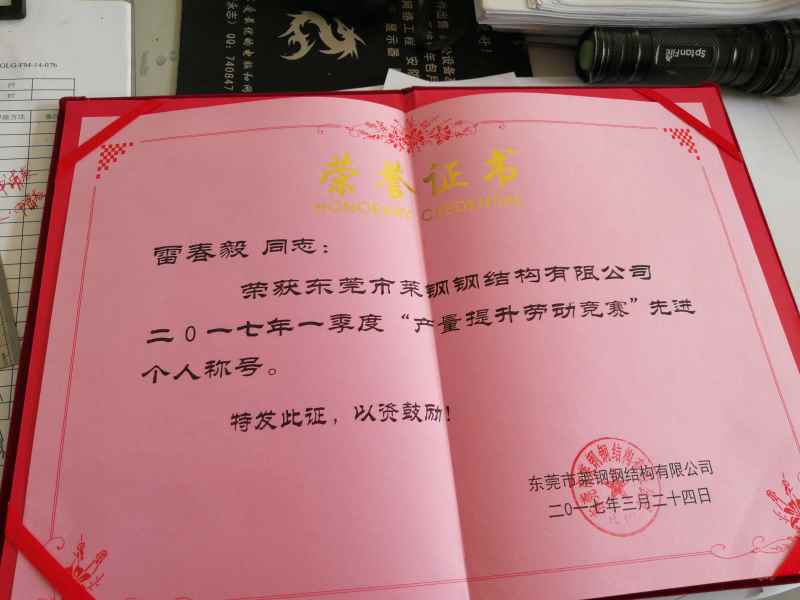 QQ: 740847
网络工程
显示器
SptanFire
OLG-FM-14-076
荣誉证书
HONORARY CREDENTIAL
雷春毅 同志：
荣获东莞市莱钢钢结构有限公司
二0一七年一季度“产量提升劳动竞赛”先进
个人称号。
特发此证，以资鼓励！
东莞市莱钢钢结构有限公司
二0一七年三月二十四日